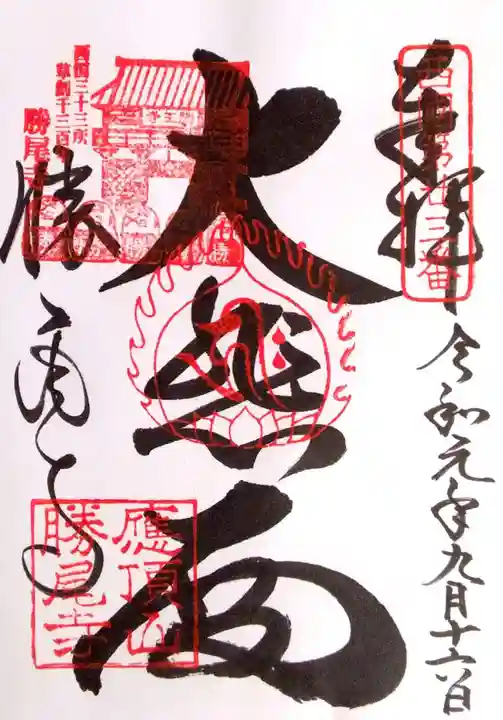 奉拝
西国第廿三番
令和元年九月十六日
大悲殿
勝尾寺
西国三十三所
草創千三百年
勝尾寺
應頂山
勝尾寺